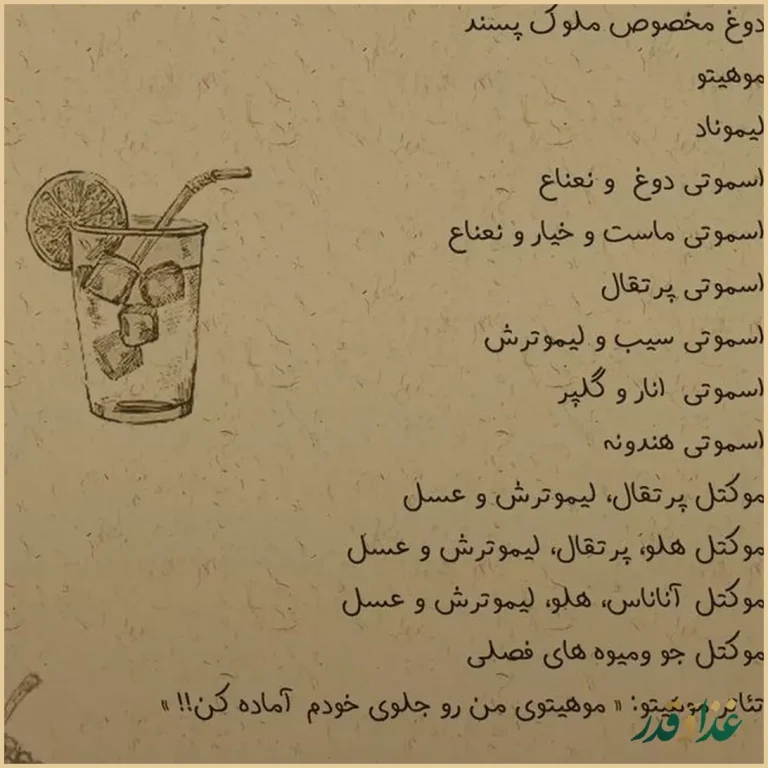 دوغ مخصوص ملوک پسند
موهیتو
لیموناد
اسموتی دوغ و نعناع
اسموتی ماست و خیار و نعناع
اسموتی پرتقال
اسموتی سیب و لیموترش
اسموتی انار و گلپر
اسموتی هندونه
موکتل پرتقال، لیموترش و عسل
موکتل هلو، پرتقال، لیموترش و عسل
موکتل آناناس، هلو، لیموترش و عسل
موکتل جو ومیوه های فصلی
تئاتر موهیتو: « موهیتوی من رو جلوی خودم آماده کن!! »
غذا قدر